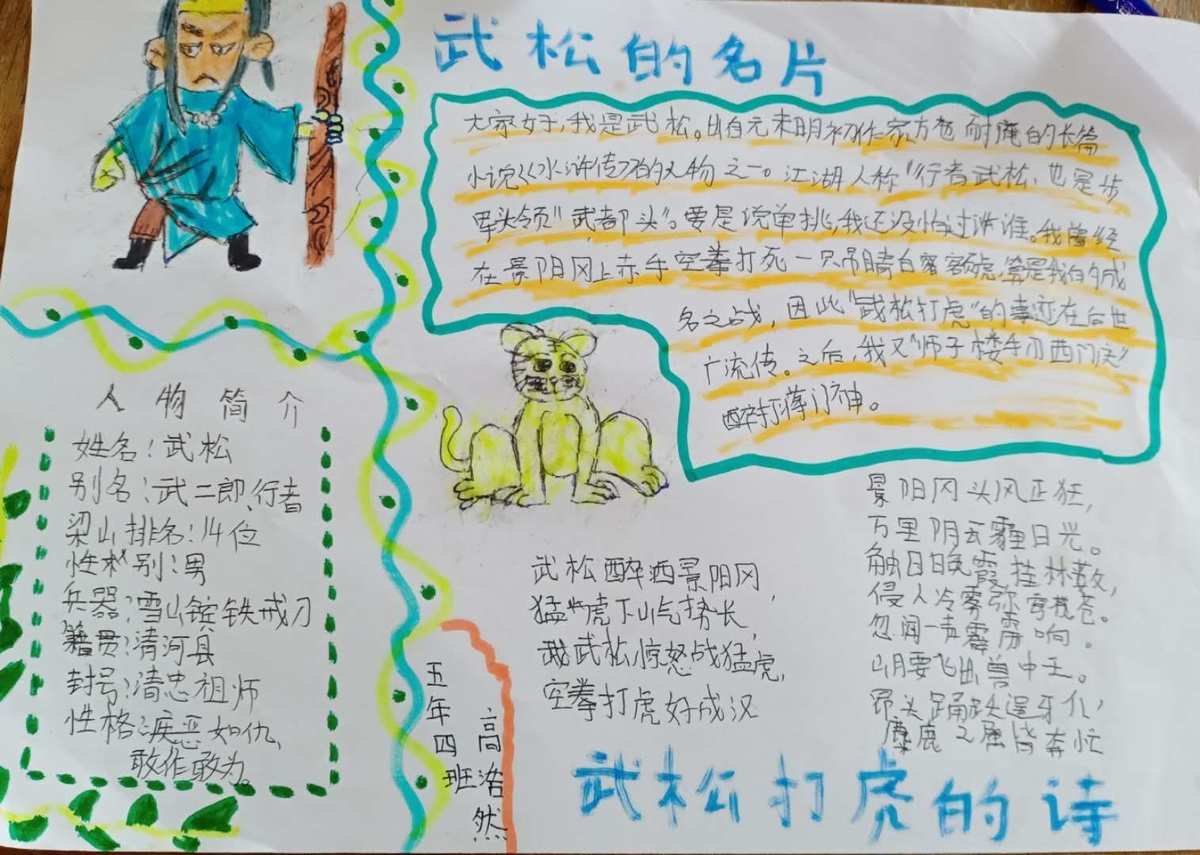 武松的名片
大家好,我是武松。出自元末明初作家方包耐庵的长篇
小说《水浒传》的人物之一。江湖人称“行者武松,也是步
军头领“武都头”。要是说单挑,我还没怕过谁。我曾经
在景阳冈上赤手空拳打死一只吊睛白额虎,算是我的成
名之战,因此“武松打虎”的事迹在后世
广流传。之后,我又“师子楼手刃西门庆”
醉打蒋门神。
人物简介
姓名:武松
别名:武二郎、行者
梁山排名:14位
性别:男
兵器:雪山镔铁戒刀
籍贯:清河县
封号:清忠祖师
性格:疾恶如仇、
敢作敢为。
五年四班
高浩然
武松醉洒景阳冈,
猛虎下山气势长,
武松惊怒战猛虎,
空拳打虎好成汉
景阳冈头风正狂,
万里阴云霾日光。
触日晚霞挂林薮,
侵人冷雾弥穹苍。
忽闻一声霹雳响,
山腰飞出兽中王。
昂头踊跃逞牙爪,
麋鹿之属皆奔忙
武松打虎的诗